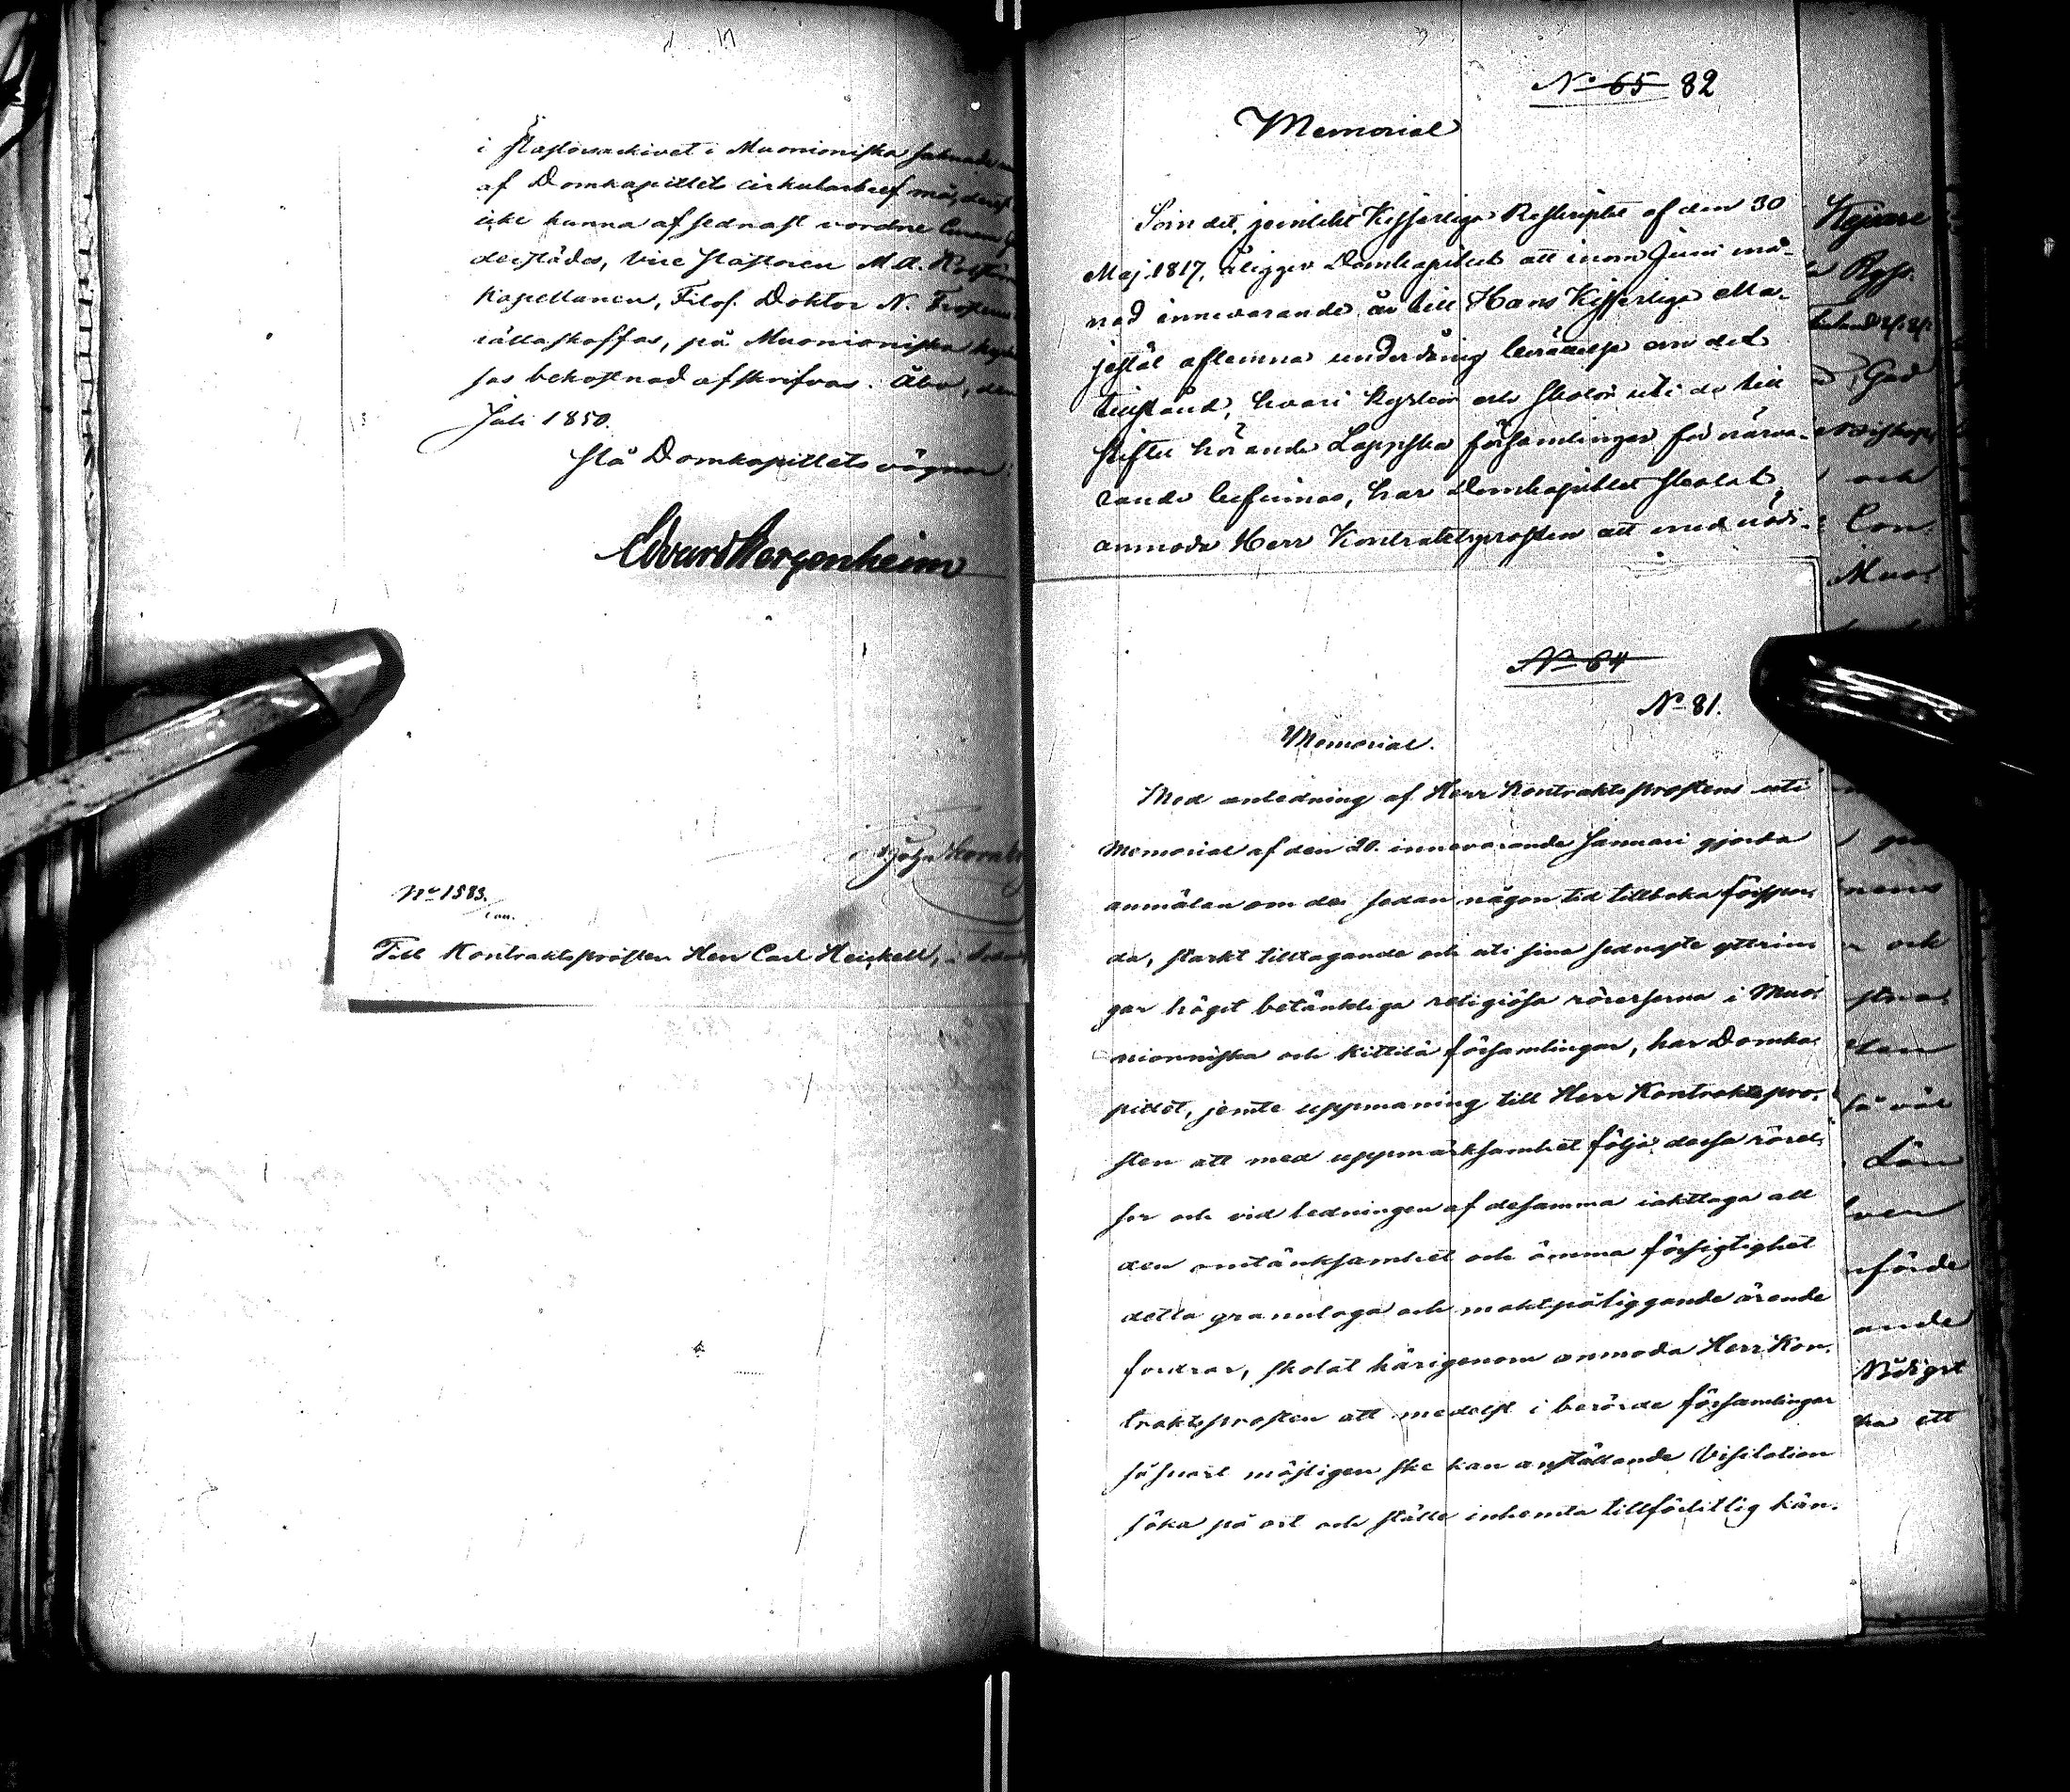 i Pastorsarkivet i Muonioniska saknade
af Domkapitlets cirkulärbref må, derest
icke kunna af sednast vordne
derstädes, Vice Pastoren M. A.
Kapellanen, Filos. Doktor N.
rättaskaffas, på Muonioniska
sas bekostnad afskrifvas. Åbo, den
Juli 1850.
På Domkapitlets vägnar:
Edvard Bergenheim
No 1583.
Till Kontraktsprosten Herr Carl Heickell, i
No 65 82
Memorial
Som det, jemlikt Kejserliga Reskriptet af den 30
Maj 1817, åligger Domkapitlet att inom Juni må-
nad innevarande år till Hans Kejserliga Ma-
jestät aflemna underdånig berättelse om det
tillstånd, hvari kyrkor och skolor uti de till
stiftet hörande Lappska församlingar för närva-
rande befinnas, har Domkapitlet skolat
anmoda Herr Kontraktsprosten att med nödi-
No 64
No 81.
Memorial.
Med anledning af Herr Kontraktsprostens uti
Memorial af den 20. innevarande Januari gjorda
anmälan om de sedan någon tid tillbaka förspor-
da, starkt tilltagande och uti sina sednaste yttrin-
gar högst betänkliga religiösa rörelserna i Muo-
nionniska och Kittilä församlingar, har Domka-
pitlet, jemte uppmaning till Herr Kontraktspro-
sten att med uppmärksamhet följa dessa rörel-
ser och vid ledningen af desamma iakttaga all
den omtänksamhet och ömma försigtighet
detta grannlaga och maktpåliggande ärende
fordrar, skolat härigenom anmoda Herr Kon-
traktsprosten att medelst i berörde församlingar
såsnart möjligen ske kan anställande Visitation
söka på ort och ställe inhemta tillförlitlig kän-
och
Con
Muo-
och
så väl
Län
förde
ande
Nådigst
ha ett